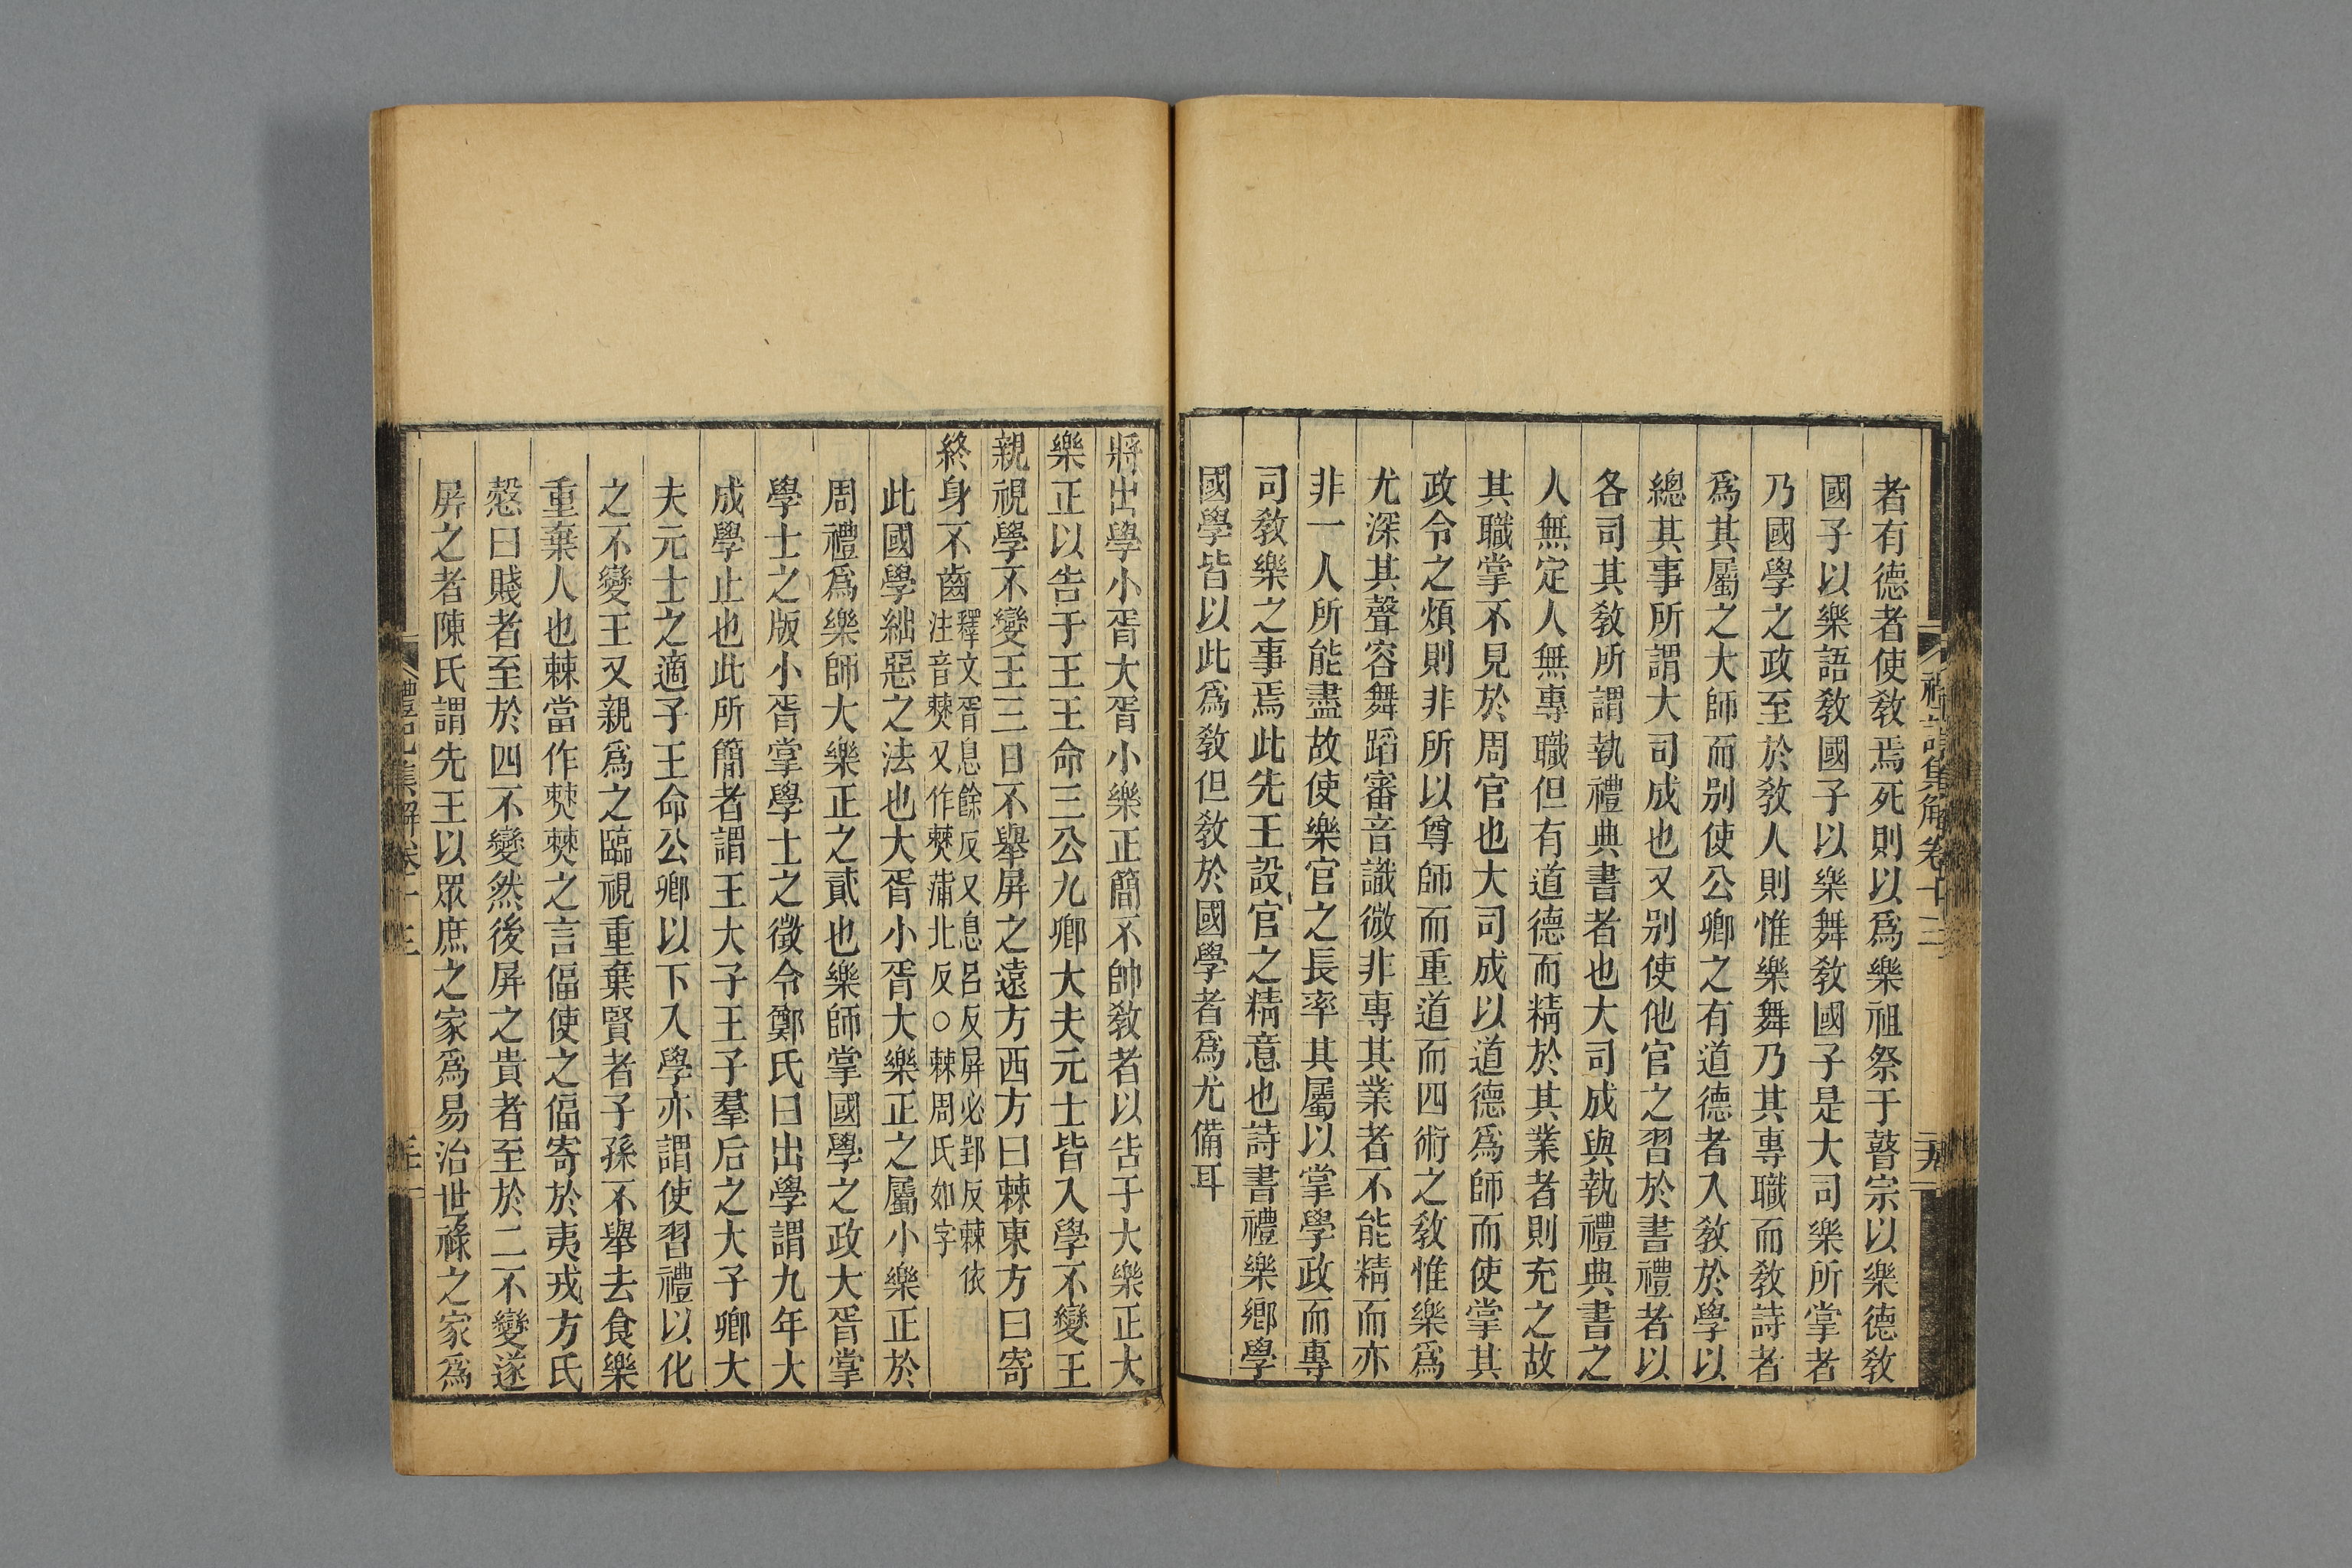 者有德者使敎焉死則以爲樂祖祭于瞽宗以樂德敎
國子以樂語敎國子以樂舞敎國子是大司樂所掌者
乃國學之政至於敎人則惟樂舞乃其專職而敎詩者
爲其屬之大師而别使公卿之有道德者入敎於學以
總其事所謂大司成也又别使他官之習於書禮者以
各司其敎所謂執禮典書者也大司成與執禮典書之
人無定人無專職但有道德而精於其業者則充之故
其職掌不見於周官也大司成以道德爲師而使掌其
政令之煩則非所以尊師而重道而四術之敎惟樂爲
尤深其聲容舞蹈審音識微非專其業者不能精而亦
非一人所能盡故使樂官之長率其屬以掌學政而專
司敎樂之事焉此先王設官之精意也詩書禮樂鄉學
國學皆以此爲敎但敎於國學者爲尤備耳
將出學小胥大胥小樂正簡不帥敎者以告于大樂正大
樂正以告于王王命三公九卿大夫元士皆入學不變王
親視學不變王三日不舉屏之遠方西方曰棘東方曰寄
終身不齒釋文胥息餘反又息呂反屏必郢反棘依
注音僰又作僰蒲北反○棘周氏如字
此國學絀惡之法也大胥小胥大樂正之屬小樂正於
周禮爲樂師大樂正之貳也樂師掌國學之政大胥掌
學士之版小胥掌學士之徵令鄭氏曰出學謂九年大
成學止也此所簡者謂王大子王子羣后之大子卿大
夫元士之適子王命公卿以下入學亦謂使習禮以化
之不變王又親爲之臨視重棄賢者子孫不舉去食樂
重棄人也棘當作僰僰之言偪使之偪寄於夷戎方氏
慤曰賤者至於四不變然後屏之貴者至於二不變遂
屏之者陳氏謂先王以眾庶之家爲易治世祿之家爲
禮記集解卷十三